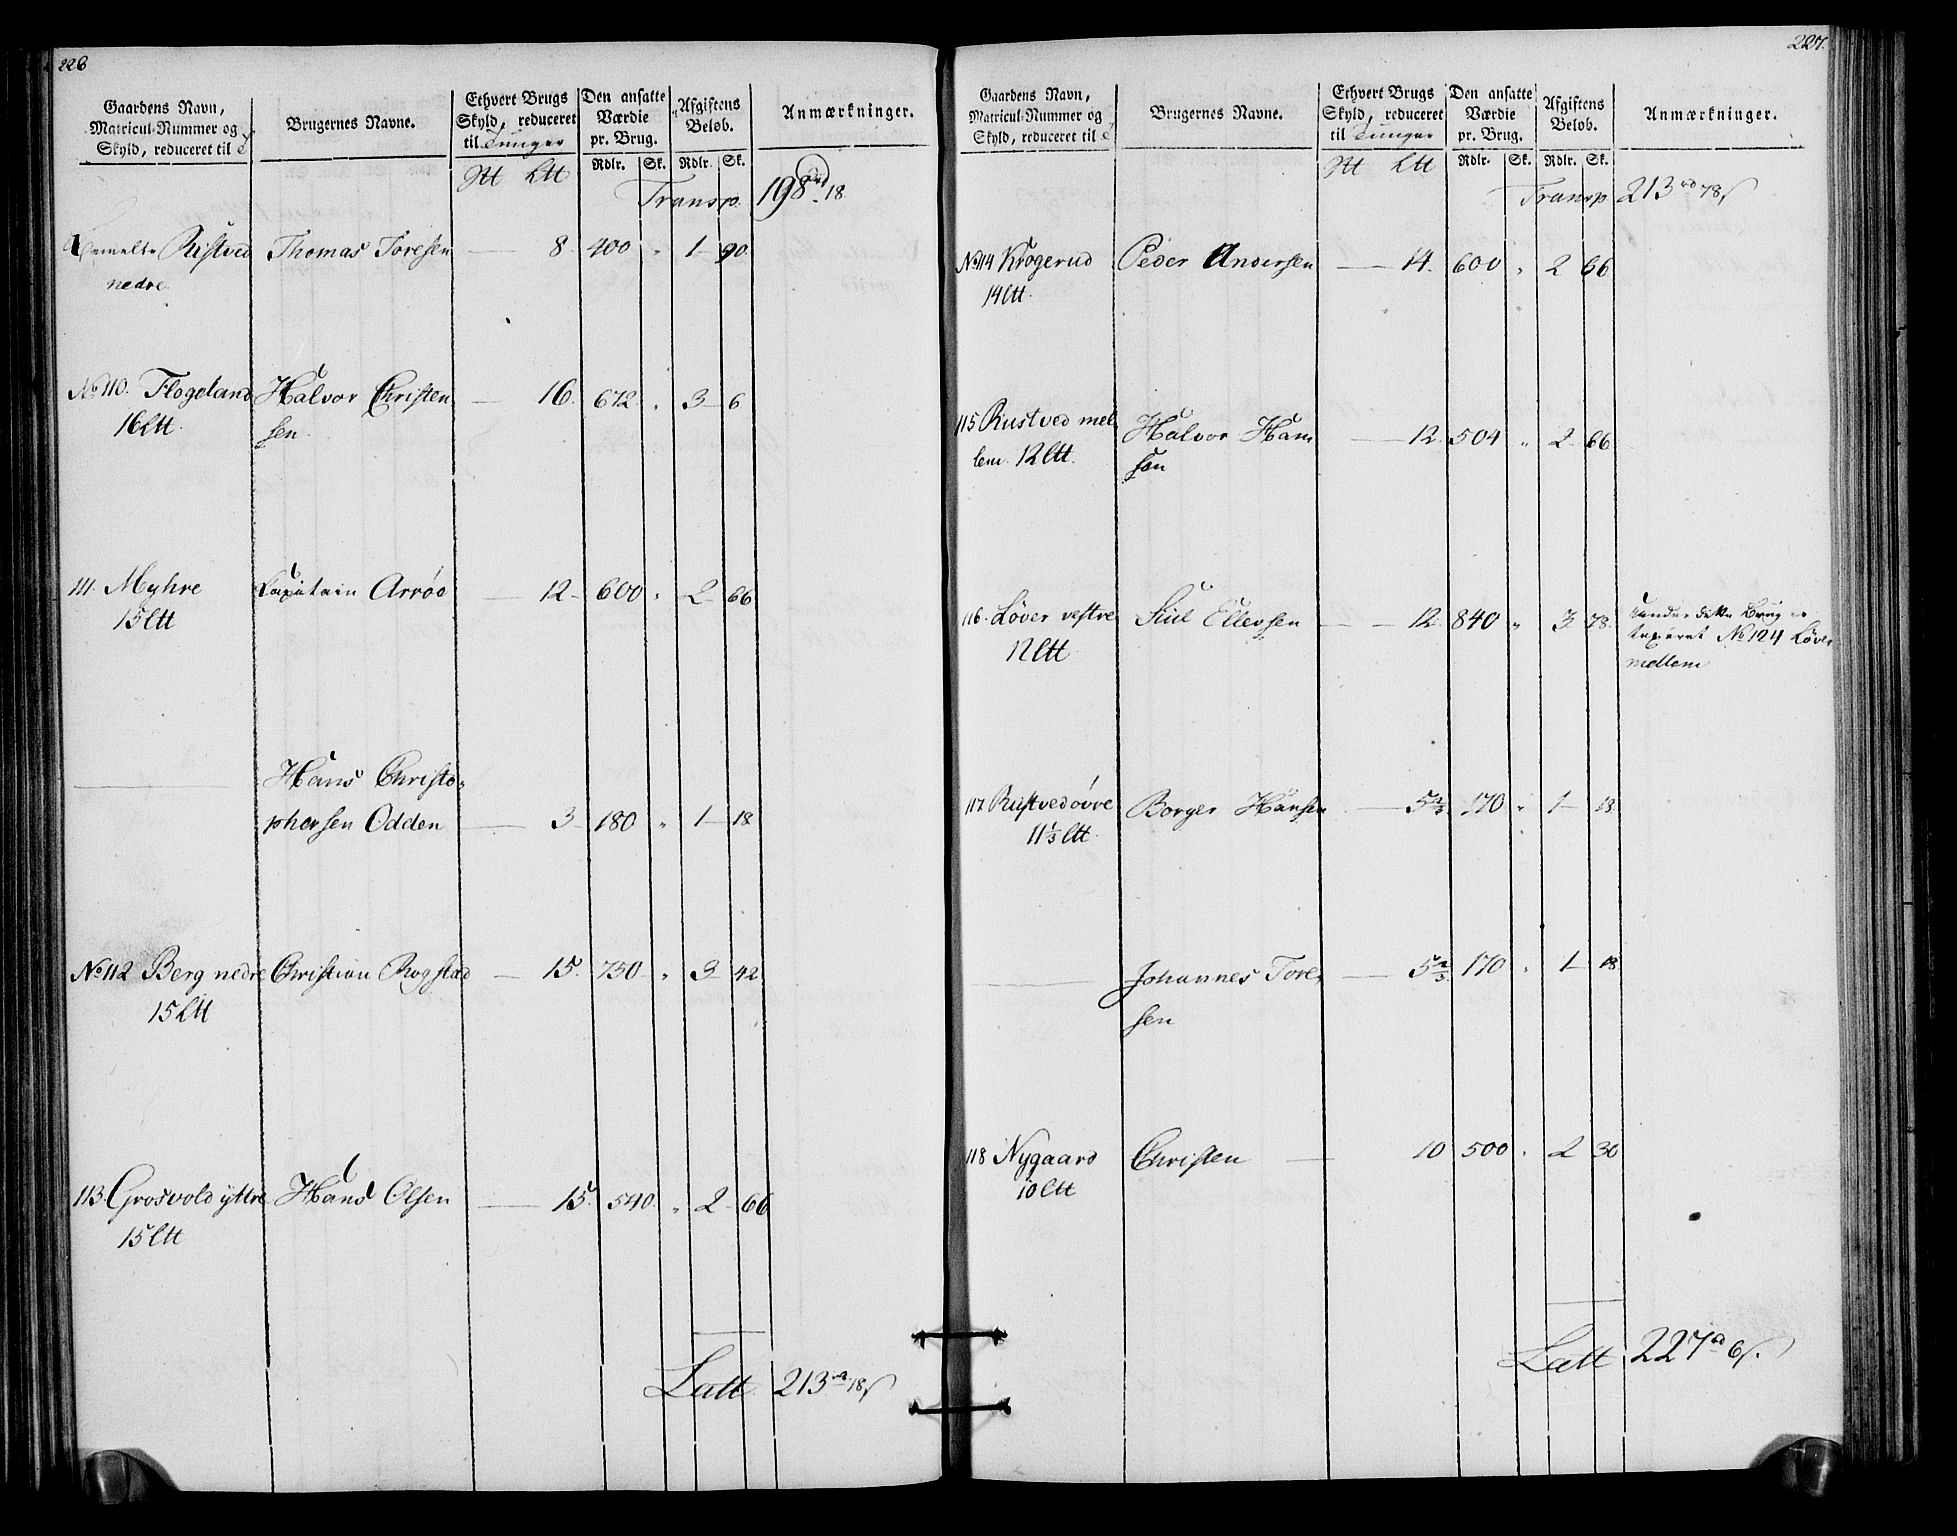 226
Gaardens Navn, Matricul-Nummer og Skyld, reduceret til
Brugernes Navne.
Ethvert Brugs Skyld, reduceret til Tunger
Den ansatte Værdie pr. Brug.
Afgiftens Beløb.
Anmærkninger.
Rdlr. Sk. Rdlr. Sk.
Transp. 198 rd 18
Ristved Thomas Toresen 8. 400 " 1 90
nedre
No 110. Flogeland Halvor Christen 16. 672 " 3 6
16 Ltt sen
111. Myhre Capitain Arröe 12 600 " 2 66
15 Ltt
Hans Christo-
phersen Odden 3 180 " 1 18
No 112 Berg nedre Christian Rogstad 15. 750 " 3 42
15 Ltt
113. Grosvold yttre Hans Olsen 15. 540. " 2 66
15 Ltt
Latt 213 rd 18 s
227.
Gaardens Navn, Matricul-Nummer og Skyld, reduceret til
Brugernes Navne.
Ethvert Brugs Skyld, reduceret til Tunger
Den ansatte Værdie pr. Brug.
Afgiftens Beløb.
Anmærkninger.
Rdlr. Sk. Rdlr. Sk.
Transp 213 rd 78 s
No 114 Krogerud Peder Andersen 14. 600 " 2 66
14 Ltt.
115 Rustved mel Halvor Han 12. 504 " 2 66
lem 12 Ltt. sen
116. Löver vestre Siul Ellevsen 12. 840 " 3 78. under dette Brug er
12 Ltt No 124 Löver
mellem
117 Rustved övre Borger Hansen 5 2/3 170 " 1 18
11 1/3 Ltt.
Johannes Tore- 5 2/3 170 " 1 18
sen
118 Nygaard Christen 10 500 " 2 30
10 Ltt
Latt 227 rd 6 s.